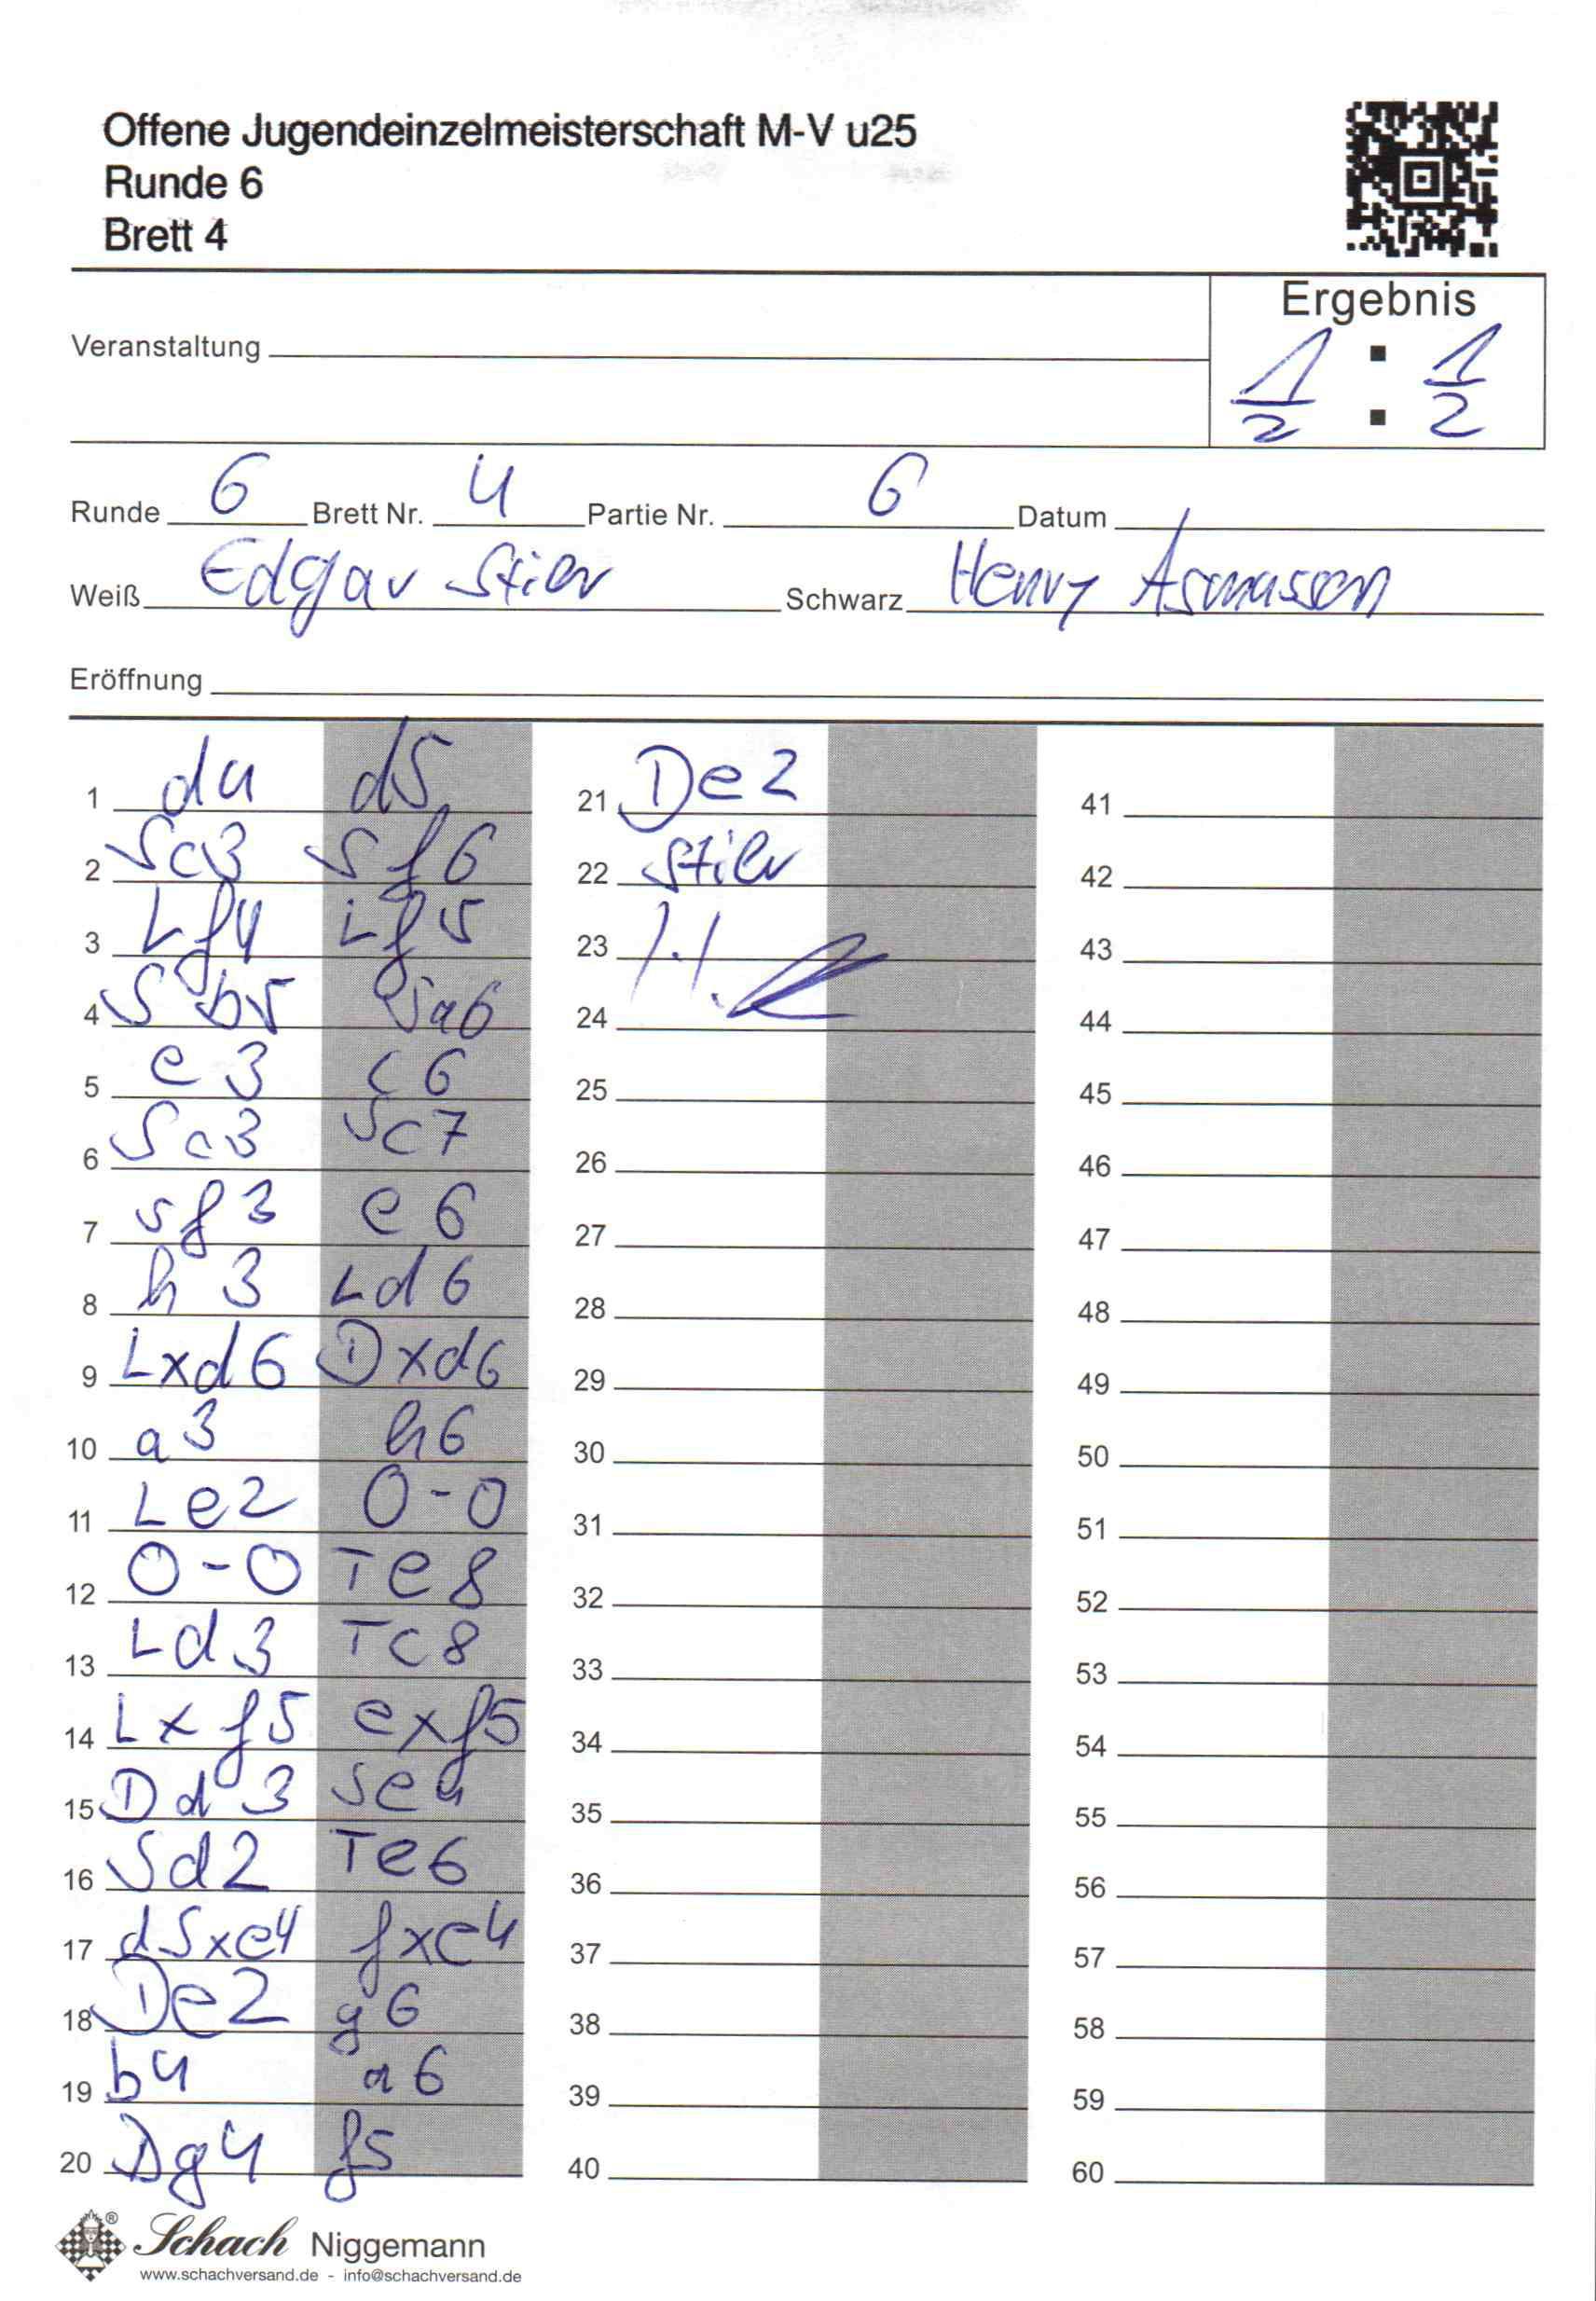 Offene Jugendeinzelmeisterschaft M-V u25
Runde 6
Brett 4
Ergebnis
Veranstaltung
1/2 : 1/2
Runde 6 Brett Nr. 4 Partie Nr. 6 Datum
Weiß Edgar Stier Schwarz Henry Asmussen
Eröffnung
1 d4 d5
2 Sc3 Sf6
3 Lf4 Lf5
4 Sb5 Sa6
5 e3 c6
6 Sc3 Sc7
7 sf3 e6
8 h3 Ld6
9 Lxd6 Dxd6
10 a3 h6
11 Le2 0-0
12 0-0 Te8
13 Ld3 Tc8
14 Lxf5 exf5
15 Dd3 Se4
16 Sd2 Te6
17 dSxe4 fxe4
18 De2 g6
19 b4 a6
20 Dg4 f5
21 De2
22 Stier
23 H.
24
25
26
27
28
29
30
31
32
33
34
35
36
37
38
39
40
41
42
43
44
45
46
47
48
49
50
51
52
53
54
55
56
57
58
59
60
® Schach Niggemann
www.schachversand.de - info@schachversand.de